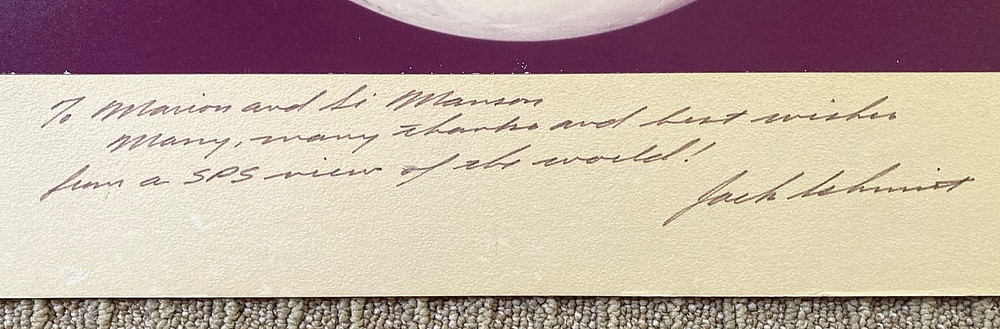 To Marion and Si Manson
Many, many thanks and best wishes
from a SPS view of the world!
Jack Schmitt